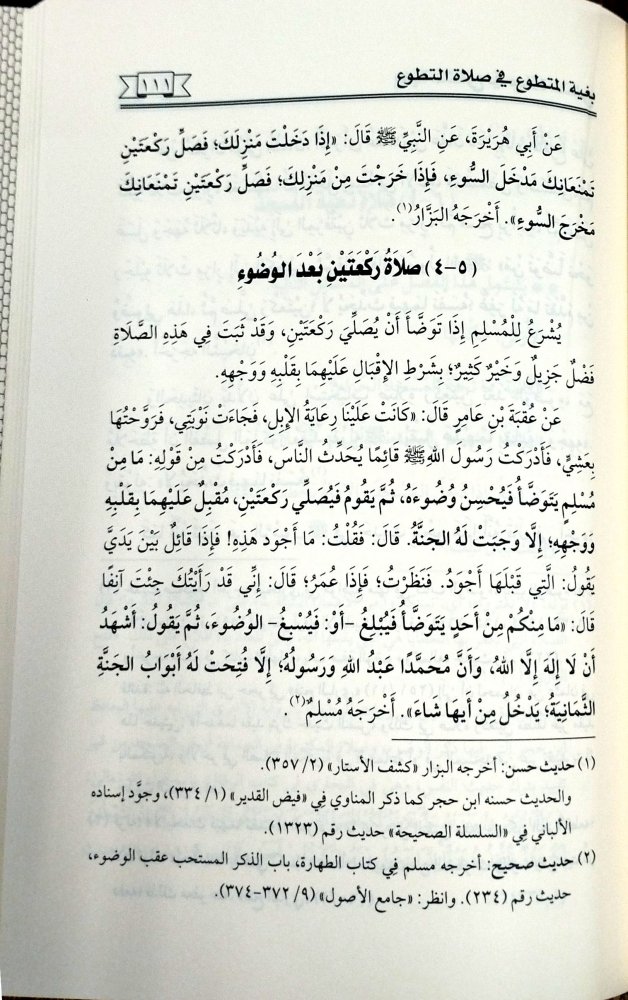 بغية المتطوع في صلاة التطوع
١١١
عَنْ أَبِي هُرَيْرَةَ، عَنِ النَّبِيِّ ﷺ قَالَ: «إِذَا دَخَلْتَ مَنْزِلَكَ؛ فَصَلِّ رَكْعَتَيْنِ
تَمْنَعَانِكَ مَدْخَلَ السُّوءِ، فَإِذَا خَرَجْتَ مِنْ مَنْزِلِكَ؛ فَصَلِّ رَكْعَتَيْنِ تَمْنَعَانِكَ
مَخْرَجَ السُّوءِ». أَخْرَجَهُ البَزَّارُ(١).
(٥-٤) صَلَاةُ رَكْعَتَيْنِ بَعْدَ الوُضُوءِ
يُشْرَعُ لِلْمُسْلِمِ إِذَا تَوَضَّأَ أَنْ يُصَلِّيَ رَكْعَتَيْنِ، وَقَدْ ثَبَتَ فِي هَذِهِ الصَّلَاةِ
فَضْلٌ جَزِيلٌ وَخَيْرٌ كَثِيرٌ؛ بِشَرْطِ الإِقْبَالِ عَلَيْهِمَا بِقَلْبِهِ وَوَجْهِهِ.
عَنْ عُقْبَةَ بْنِ عَامِرٍ قَالَ: «كَانَتْ عَلَيْنَا رِعَايَةُ الإِبِلِ، فَجَاءَتْ نَوْبَتِي، فَرَوَّحْتُهَا
بِعَشِيٍّ، فَأَدْرَكْتُ رَسُولَ اللهِ ﷺ قَائِمًا يُحَدِّثُ النَّاسَ، فَأَدْرَكْتُ مِنْ قَوْلِهِ: مَا مِنْ
مُسْلِمٍ يَتَوَضَّأُ فَيُحْسِنُ وُضُوءَهُ، ثُمَّ يَقُومُ فَيُصَلِّي رَكْعَتَيْنِ، مُقْبِلٌ عَلَيْهِمَا بِقَلْبِهِ
وَوَجْهِهِ؛ إِلَّا وَجَبَتْ لَهُ الجَنَّةُ. قَالَ: فَقُلْتُ: مَا أَجْوَدَ هَذِهِ! فَإِذَا قَائِلٌ بَيْنَ يَدَيَّ
يَقُولُ: الَّتِي قَبْلَهَا أَجْوَدُ. فَنَظَرْتُ؛ فَإِذَا عُمَرُ؛ قَالَ: إِنِّي قَدْ رَأَيْتُكَ جِئْتَ آنِفًا
قَالَ: «مَا مِنْكُمْ مِنْ أَحَدٍ يَتَوَضَّأُ فَيُبْلِغُ -أَوْ: فَيُسْبِغُ- الوُضُوءَ، ثُمَّ يَقُولُ: أَشْهَدُ
أَنْ لَا إِلَهَ إِلَّا اللهُ، وَأَنَّ مُحَمَّدًا عَبْدُ اللهِ وَرَسُولُهُ؛ إِلَّا فُتِحَتْ لَهُ أَبْوَابُ الجَنَّةِ
الثَّمَانِيَةُ؛ يَدْخُلُ مِنْ أَيِّهَا شَاءَ». أَخْرَجَهُ مُسْلِمٌ(٢).
(١) حديث حسن: أخرجه البزار «كشف الأستار» (٢/ ٣٥٧).
والحديث حسنه ابن حجر كما ذكر المناوي في «فيض القدير» (١/ ٣٣٤)، وجوَّد إسناده
الألباني في «السلسلة الصحيحة» حديث رقم (١٣٢٣).
(٢) حديث صحيح: أخرجه مسلم في كتاب الطهارة، باب الذكر المستحب عقب الوضوء،
حديث رقم (٢٣٤). وانظر: «جامع الأصول» (٩/ ٣٧٢-٣٧٤).